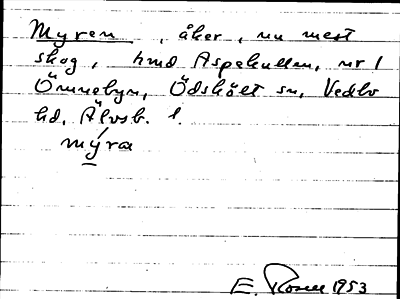 Myren, åker, nu mest
skog, hmd Aspekullen, nr 1
Ömnebyn, Ödskölt sn, Vedbo
hd, Älvsb. l.
mýra
E. Rosell 1953